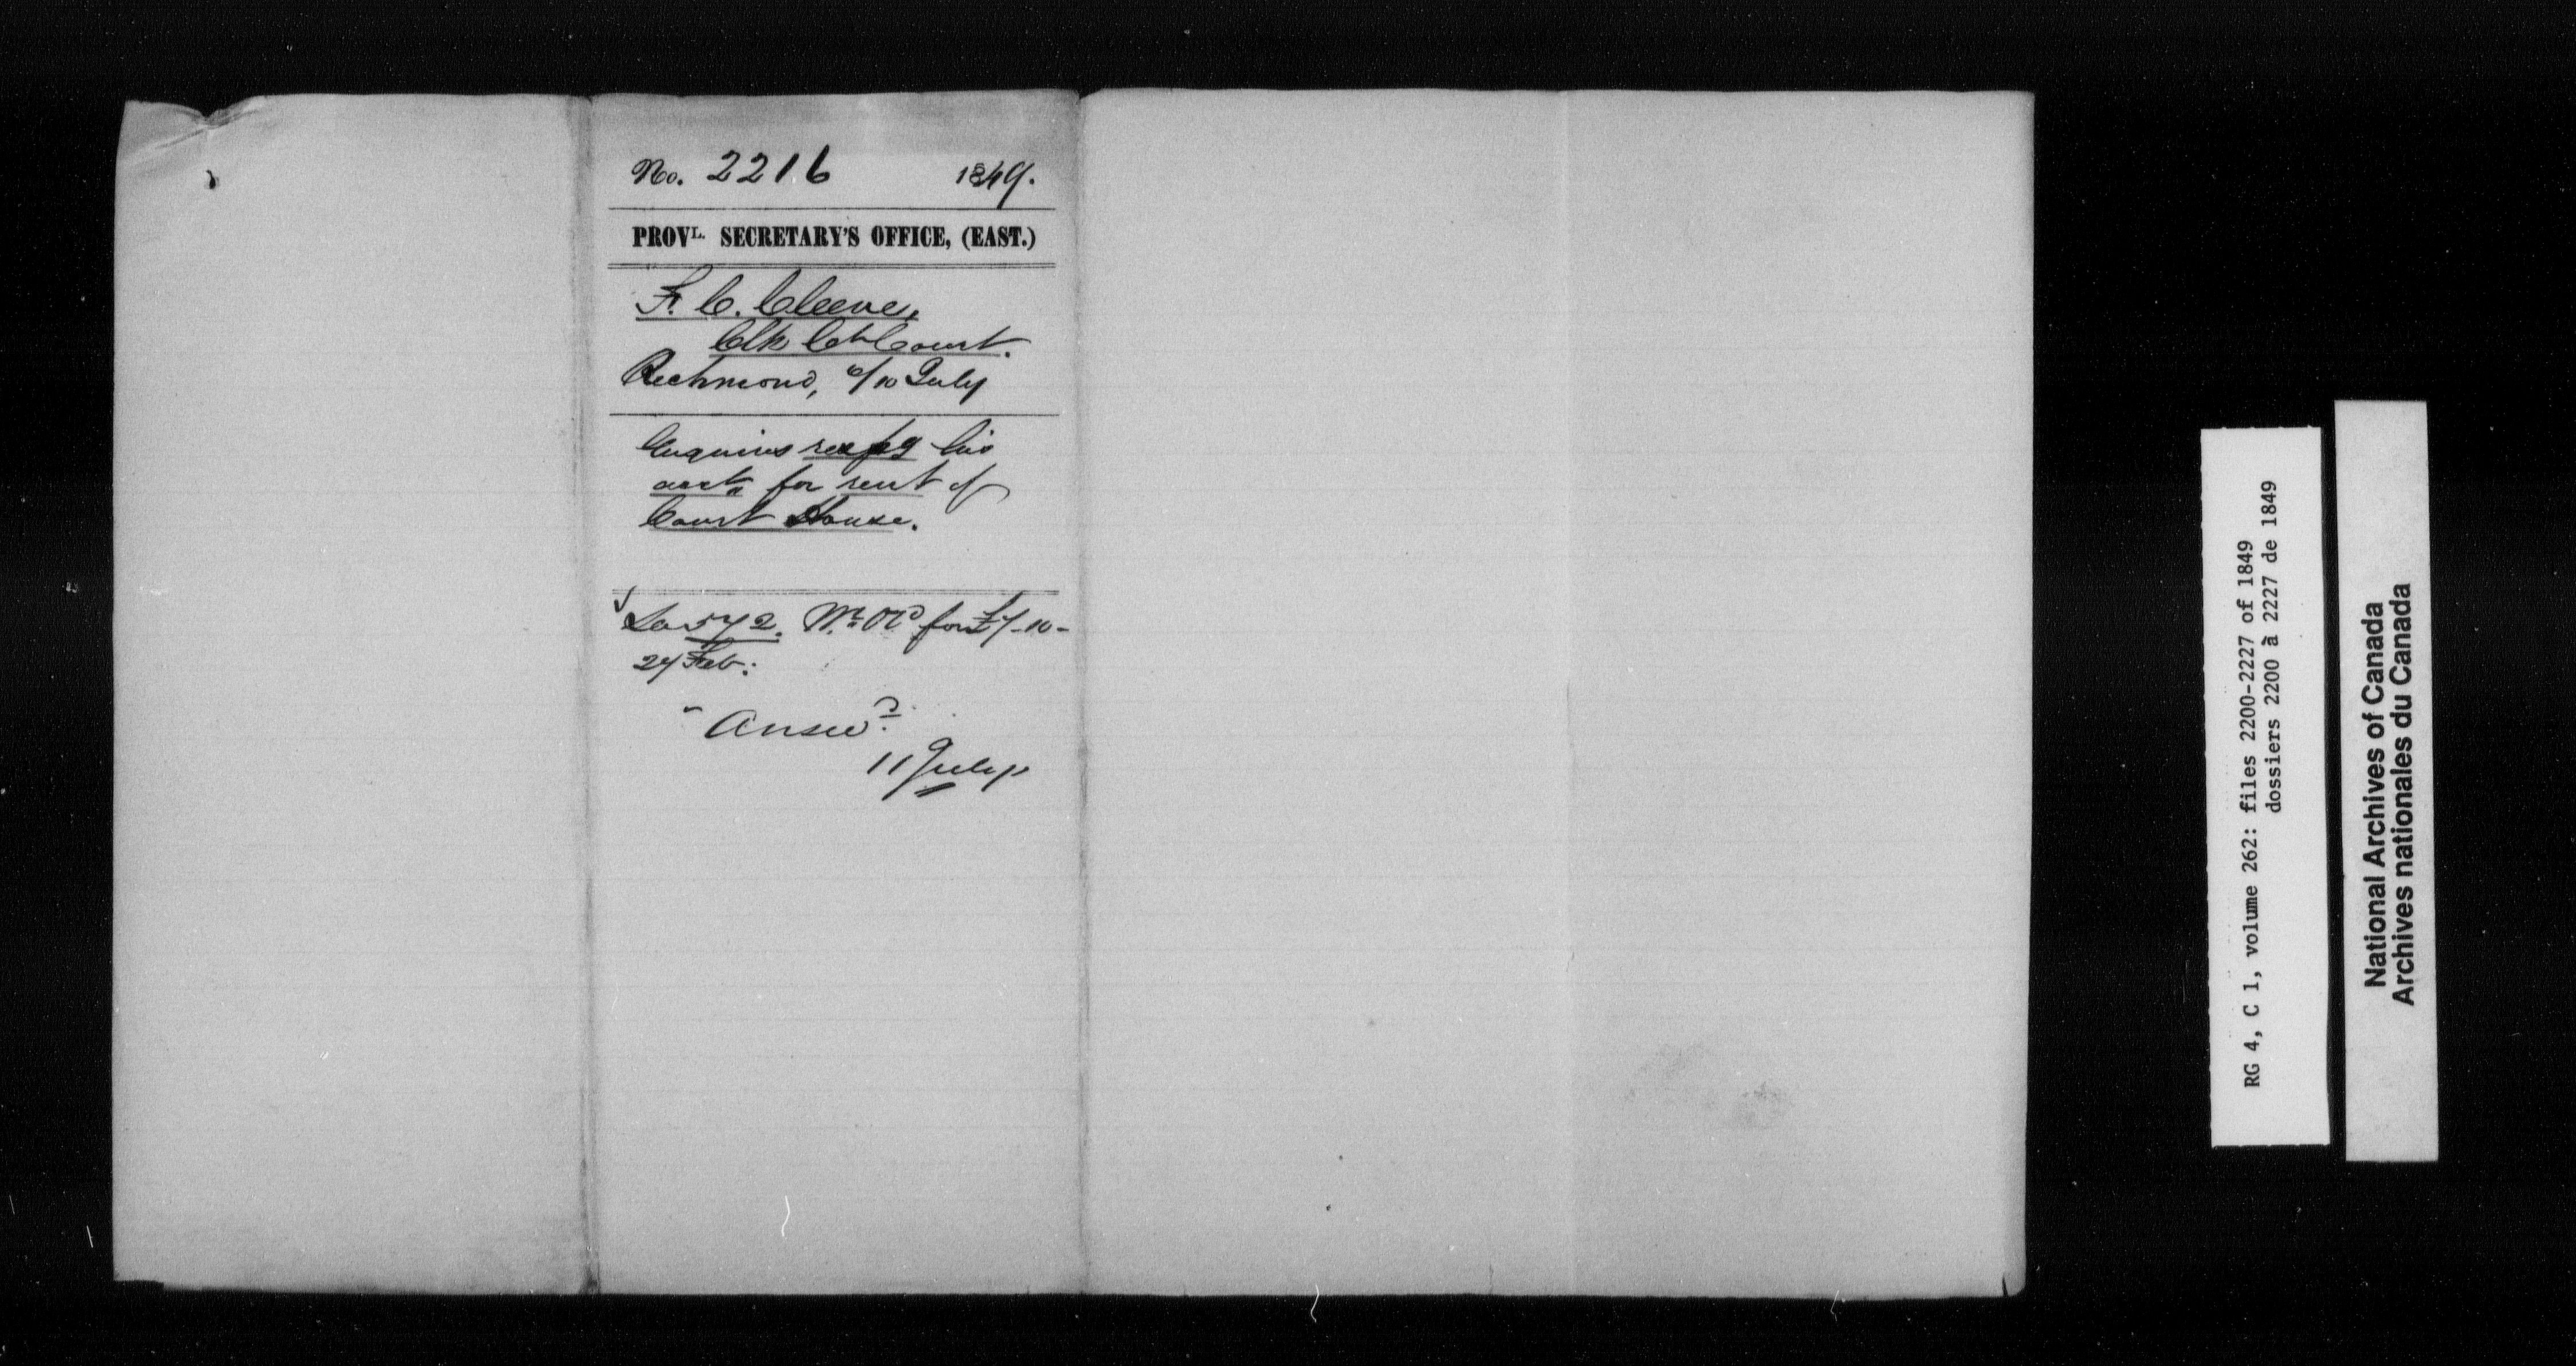 No. 2216 1849.
PROVL. SECRETARY'S OFFICE, (EAST.)
F. C. Cleeve,
Clk Ct Court.
Richmond, 6/10 July
Enquires respg his
acct for rent of
Court House.
572. Wt for £7-10-
24 Feb:
Answd
11 July
RG 4, C 1, volume 262: files 2200-2227 of 1849
dossiers 2200 à 2227 de 1849
National Archives of Canada
Archives nationales du Canada